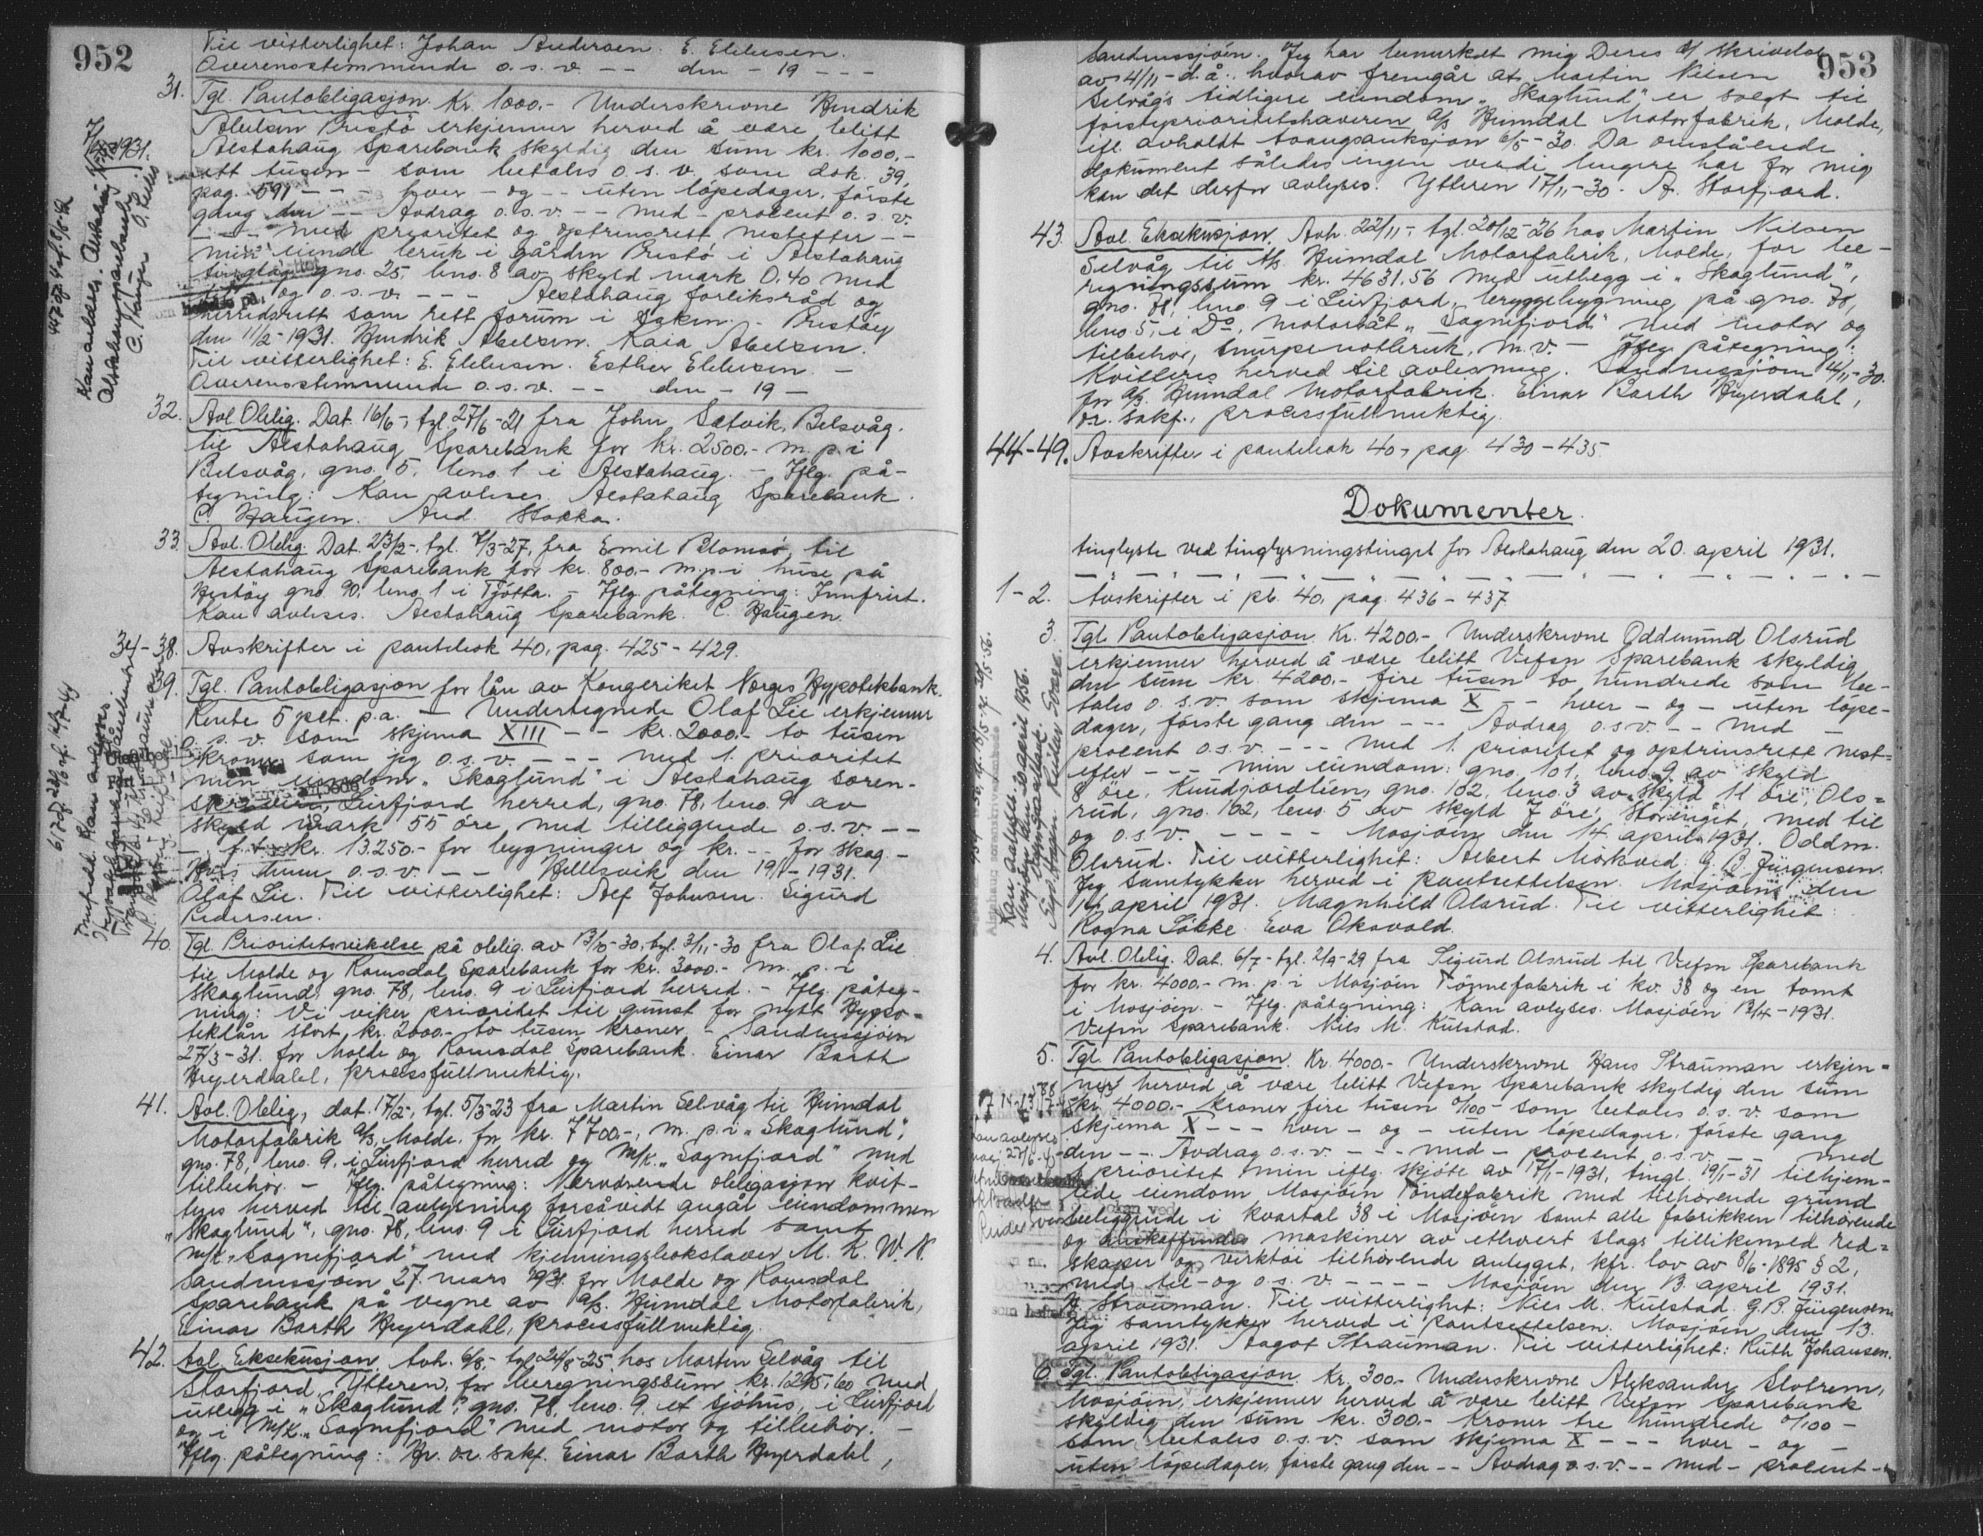 952
Til vitterlighet: Johan Andersen. E. Ellefsen.
Overensstemmende o. s. v. -- den - 19 - - -
31. Tgl. Pantobligasjon. Kr. 1000.- Underskrivne Hendrik
Abelsen Bristö erkjenner herved å være blitt
Alstahaug Sparebank skyldig den sum kr. 1000,-
ett tusen - som betales o. s. v. som dok. 39,
pag. 591 - - - hver - og - uten löpedager, förste
gang den -- Avdrag o.s.v. -- med - procent o. s. v.
- - - med prioritet og optrinsrett nestefter - -
min eiende bruk i gården Bristö i Alstahaug
tinglag gno. 25 bno. 8 av skyld mark 0.40 med
og o. s. v. - - - Alstahaug forliksråd og
herredsrett som rett forum i saken. - Bristöy
den 11/2 - 1931. Hendrik Abelsen. Kaia Abelsen.
Til vitterlighet: E. Ellefsen. Esther Ellefsen. -
Overensstemmende o. s. v. -- den - 19 -
32. Avl. Oblig. Dat. 16/6-, tgl. 27/6-21 fra John Sætvik, Belsvåg.
til Alstahaug Sparebank for kr. 2500.- m. p. i
Belsvåg, gno. 5, bno. 1 i Alstahaug. - Iflg. på-
tegning: Kan avleses. Alstahaug Sparebank.
C. Haugen. And. Stokka.
33. Avl. Oblig. Dat. 23/2-, tgl. 7/3-27, fra Emil Blomsö, til
Alstahaug Sparebank for kr. 800.- m.p.i huse på
Hestöy gno. 90, bno. 1 i Tjötta. - Iflg. påtegning: Innfriet.
Kan avleses. Alstahaug Sparebank. C. Haugen.
34-38. Avskrifter i pantebok 40, pag. 425 - 429.
39. Tgl. Pantobligasjon for lån av Kongeriket Norges Hypotekbank.
Rente 5 pct. p.a. - Undertegnede Olaf Lie erkjenner
o. s. v. som skjema XIII - - kr. 2000.- to tusen
kroner som jeg o. s. v. - - - med 1. prioritet
min eiendom "Skoglund" i Alstahaug soren-
skriveri, Leirfjord herred, gno. 78, bno. 9 av
skyld mark 55 öre med tilliggende o. s. v. --
- f. t. kr. 13.250.- for bygninger og kr. -- for skog. -
Hvis denne o.s.v. - - Hellesvik den 19/1 - 1931.
Olaf Lie. Til vitterlighet: Alf Johnsen. Sigurd
Pedersen.
40. Tgl. Prioritetsvikelse på oblig. av 13/10-30, tgl. 3/11-30 fra Olaf Lie
til Molde og Romsdal Sparebank for kr. 3000.- m. p. i
Skoglund, gno. 78, bno. 9 i Leirfjord herred. - Iflg. påteg-
ning: Vi viker prioritet til gunst for nytt Hypo-
teklån stort kr. 2000.- to tusen kroner. - Sandnessjöen
27/3-31. for Molde og Romsdal Sparebank. Einar Barth
Heyerdahl, processfullmektig.
41. Avl. Oblig, dat. 17/2-, tgl. 5/3-23 fra Martin Selvåg til Heimdal
Motorfabrik a/s, Molde, for kr. 7700.-, m. p. i "Skoglund",
gno. 78, bno. 9, i Leirfjord herred og M/K. "Sognefjord" med
tilbehör. - Iflg. påtegning: Nærværende obligasjon kvit-
teres herved til avlysning forsåvidt angår eiendommen
"Skoglund", gno. 78, bno. 9 i Leirfjord herred samt
m/K. "Sognefjord" med kjenningsbokstaver M. K. W. N.
Sandnessjöen 27. mars 1931. for Molde og Romsdal
Sparebank på vegne av a/s. Heimdal Motorfabrik,
Einar Barth Heyerdahl, processfullmektig.
42. Avl. Eksekusjon. Avh. 6/8,- tgl. 24/8-25 hos Martin Selvåg til
Storfjord, Ytteren, for beregningssum kr. 1295,60 med
utlegg i "Skoglund", gno. 78, bno. 9, et sjöhus, i Leirfjord
og i M/K. "Sognefjord" med motor og tilbehör. -
Iflg. påtegning: Hr. o.r. sakf. Einar Barth Heyerdahl,
953
Sandnessjöen. Jeg har bemerket mig Deres a/ skrivelse
av 4/11- d.å., hvorav fremgår at Martin Nilsen
Selvågs tidligere eiendom "Skoglund" er solgt til
förstepriorititshaveren a/s Heimdal Motorfabrik, Molde,
ifl. avholdt tvangsauksjon 6/5-30. Da omstående
dokument således ingen verdi lengere har for mig
kan det derfor avlyses. Ytteren 17/11-30. A. Storfjord.
43. Avl. Eksekusjon. Avh. 22/11-, tgl. 20/12-26 hos Martin Nilsen
Selvåg til A/s. Heimdal Motorfabrik, Molde, for be-
regningssum kr. 4631.56 med utlegg i "Skoglund",
gno. 78, bno. 9 i Leirfjord, bryggebygning på gno. 78,
bno. 5, i Do, motorbåt "Sognefjord" med motor og
tilbehör, snurpenotbruk, m.v. - Iflg. påtegning:
Kvitteres herved til avlesning. Sandnessjöen 4/11-30.
for a/s. Heimdal Motorfabrik. Einar Barth Heyerdahl,
o.r. sakf., processfullmektig.
44-49. Avskrifter i pantebok 40, pag 430 - 435
Dokumenter
tinglyste ved tinglysningstinget for Alstahaug den 20. april 1931.
1-2. Avskrifter i pb. 40, pag. 436 - 437
3. Tgl. Pantobligasjon. Kr. 4200.- Underskrivne Oddmund Olsrud
erkjenner herved å være blitt Vefsn Sparebank skyldig
den sum kr. 4200.- fire tusen to hundrede som be-
tales o. s. v. som skjema X - - hver - og - uten löpe-
dager, förste gang den - - - Avdrag o.s.v. - - med -
procent o.s.v. - - - med 1. prioritet og optrinsrett nest-
efter - - - min eiendom: gno. 101, bno. 9 av skyld
8 öre, Kundjordlien, gno. 102, bno. 3 av skyld 11 öre, Ols-
rud, gno. 102, bno. 5 av skyld 7 öre, Storenget, med til
og o.s.v. - - - - - Mosjöen den 14. april 1931. Oddm.
Olsrud. Til vitterlighet: Albert Mökved. G. B. Jürgensen.
Jeg samtykker herved i pantsettelsen. Mosjöen den
14 april 1931. Magnhild Olsrud. Til vitterlighet:
Ragna Lökke. Eva Oksvold.
4. Avl. Oblig. Dat. 6/7- tgl. 2/9-29 fra Sigurd Olsrud til Vefsn Sparebank
for kr. 4000.- m. p. i Mosjöen Tönnefabrik i kv. 38 og en tomt
i Mosjöen. - Iflg. påtegning: Kan avlyses. Mosjöen 13/4-1931.
Vefsn Sparebank. Nils M. Kulstad.
5. Tgl. Pantobligasjon. Kr. 4000.- Underskrivne Hans Strauman erkjen-
ner herved å være blitt Vefsn Sparebank skyldig den sum
kr. 4000.- kroner fire tusen 0/100 - som betales o.s.v. som
skjema X - - - hver - og - uten löpedager, förste gang
den - - Avdrag o.s.v. - - - med - procent o.s.v. - - med
1. prioritet min iflg. skjöte av 17/1-1931, tingl. 19/1-31 tilhjem-
lede eiendom Mosjöen Töndefabrik med tilhörende grund
beliggende i kvartal 38 i Mosjöen samt alle fabrikken tilhörende
og anskaffendes maskiner av ethvert slags tillikemed red-
skaper og verktöi tilhörende anlegget, kfr. lov av 8/6-1895 § 2,
med til- og o. s. v. - - - - - Mosjöen den 13 april 1931.
H. Strauman. Til vitterlighet: Nils M. Kulstad. G. B. Jürgensen.
Jeg samtykker herved i pantsettelsen. Mosjöen den 13.
april 1931. Aagot Strauman. Til vitterlighet: Ruth Johansen.
6. Tgl. Pantobligasjon. Kr. 300.- Underskrivne Aleksander Slotrem,
Mosjöen, erkjenner herved å være blitt Vefsn Sparebank
skyldig den sum kr. 300.- Kroner tre hundrede 0/100 -
som betales o.s.v. som skjema X - - - hver - og -
uten löpedager, förste gang den - - Avdrag o.s.v. - - med - procent -